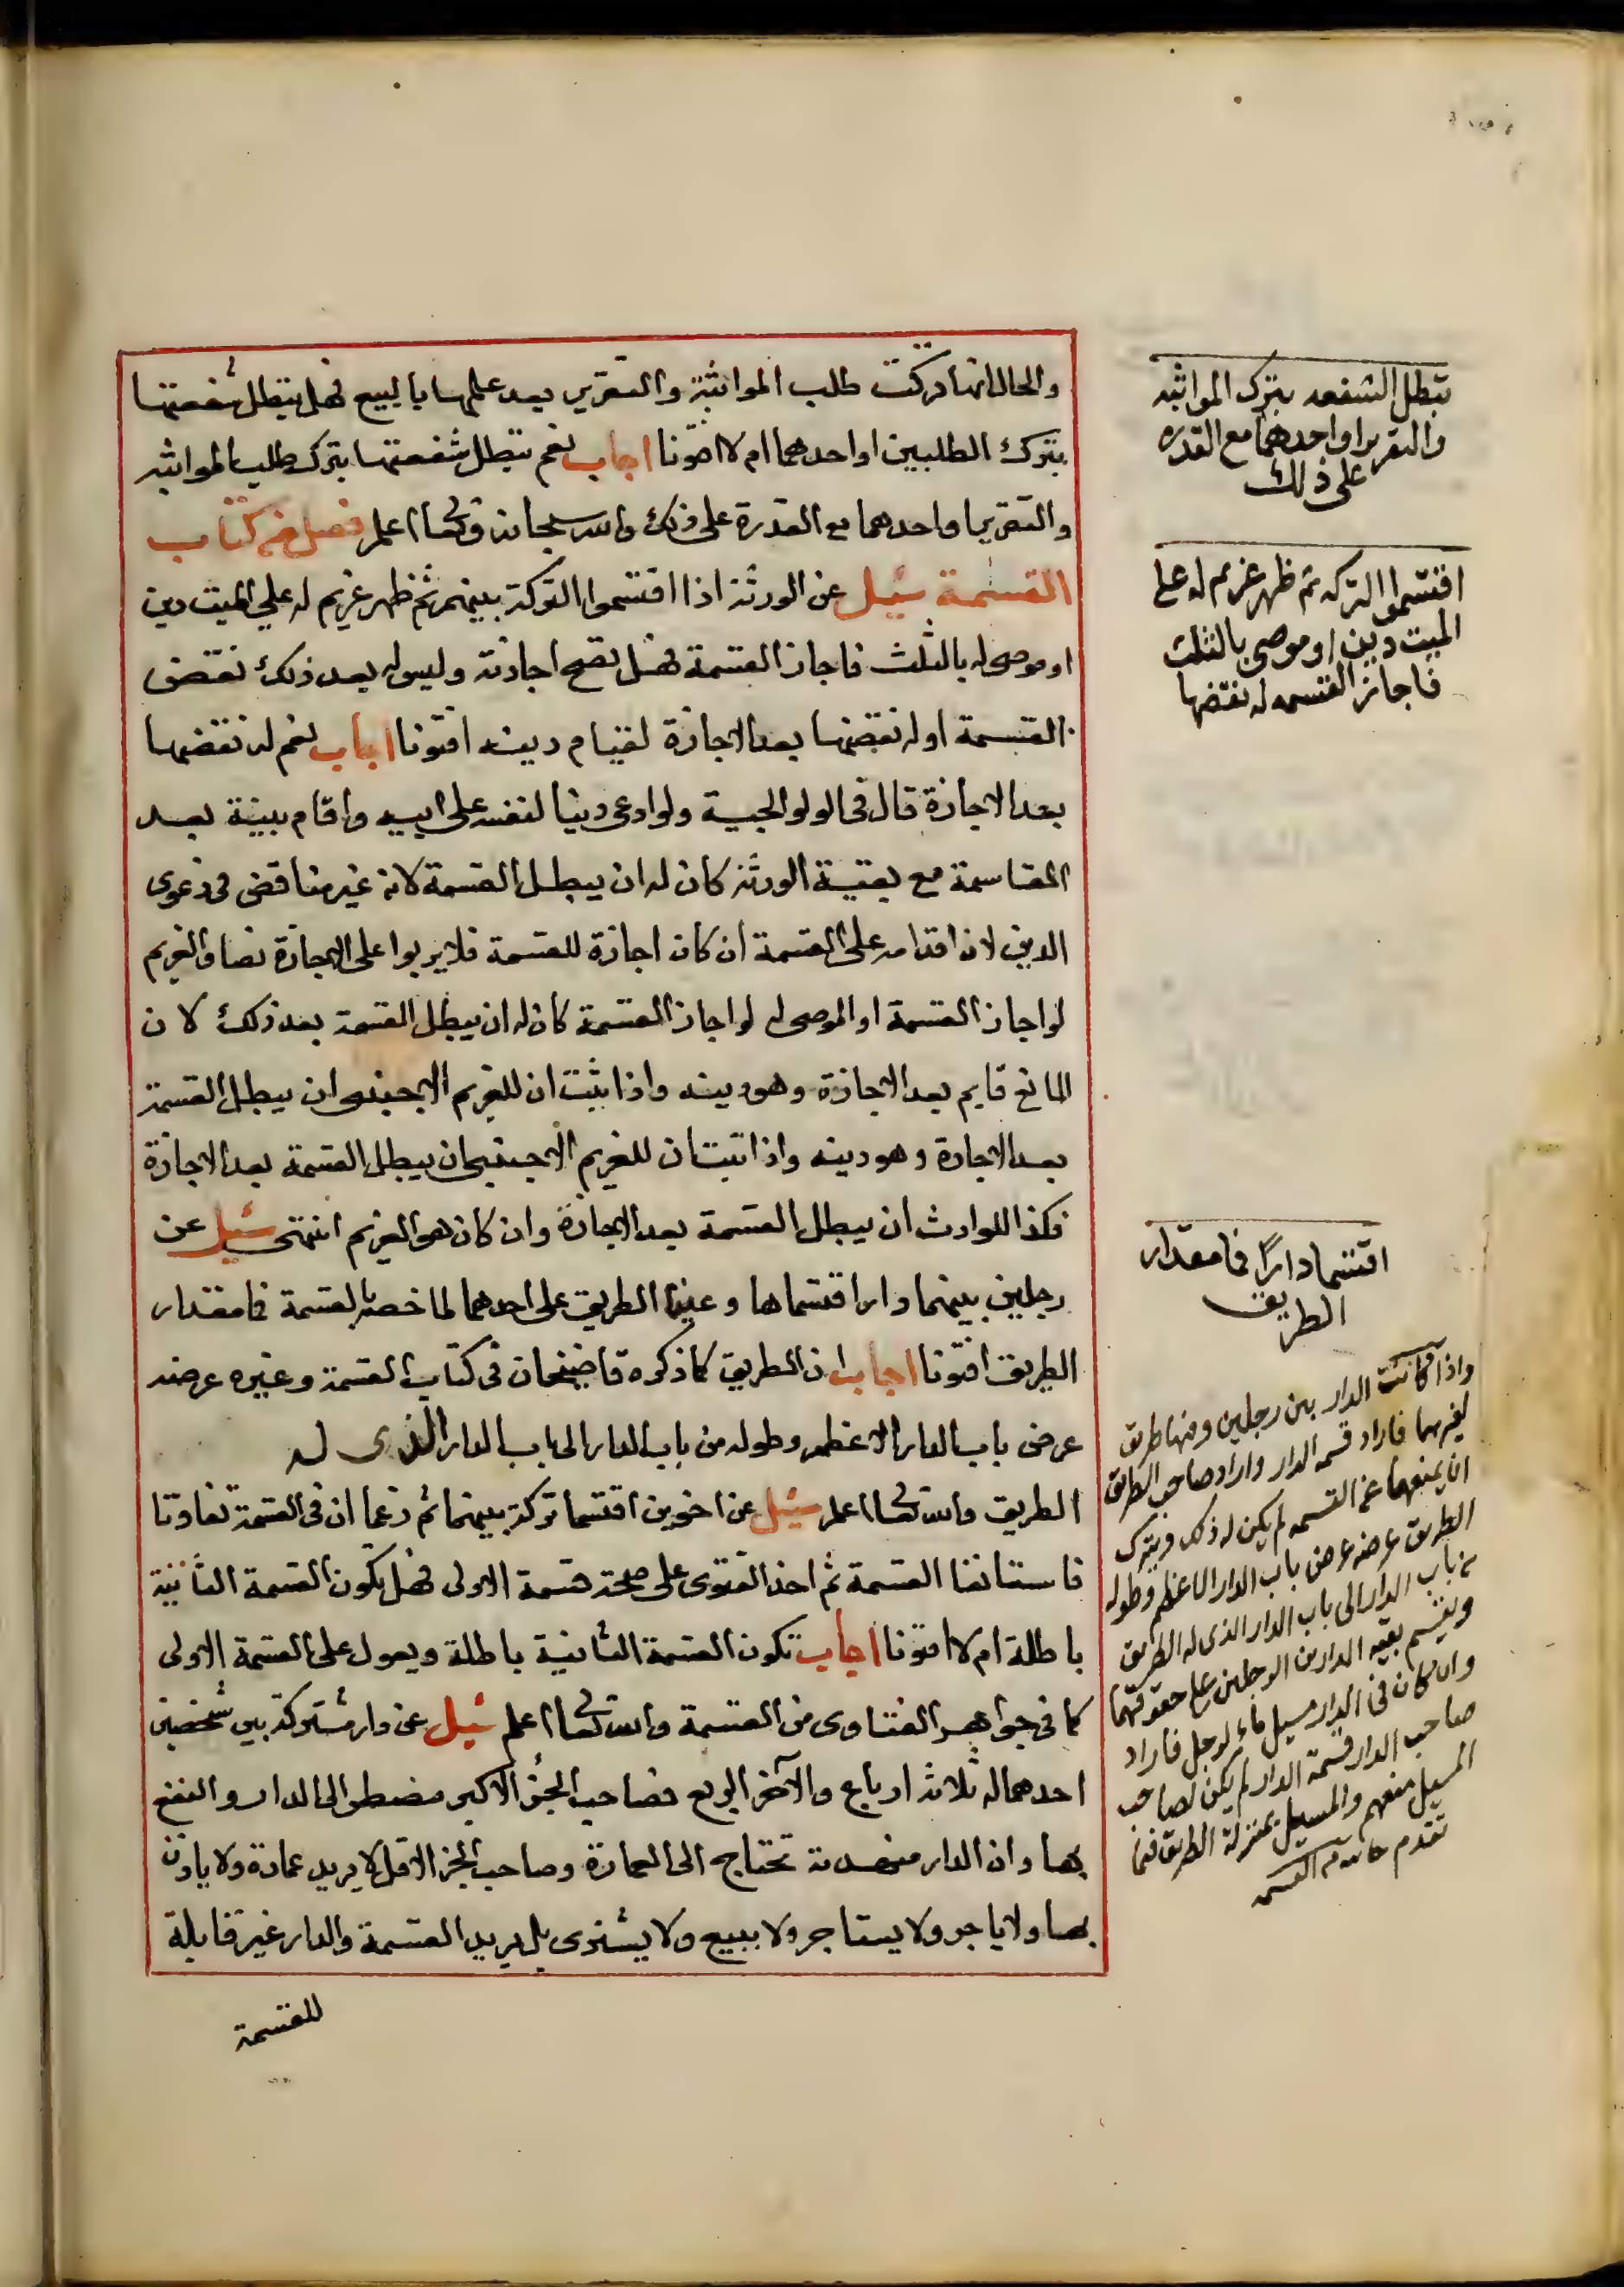 والحال انها تركت طلب المواثبة والتقرير بعد علمها بالبيع فهل تبطل شفعتها
بترك الطلبين او احدهما ام لا افتونا اجاب نعم تبطل شفعتها بترك طلب المواثبه
والتقرير او احدهما مع القدرة على ذلك والله سبحانه وتعالى اعلم فصل في كتاب
القسمة سئيل عن الورثة اذا اقتسموا التركة بينهم ثم ظهر غريم له على الميت دين
او موصى له بالثلث فاجاز القسمة فهل تصح اجازته وليس له بعد ذلك نقض
القسمة او له نقضها بعد الاجازة لقيام دينه افتونا اجاب نعم له نقضها
بعد الاجازة قال في الولوالجية ولو ادعى دينا لنفسه على ابيه واقام ببينة بعد
المقاسمة مع بقية الورثة كان له ان يبطل القسمة لانه غير مناقض في دعوى
الدين لان اقدامه على القسمة ان كان اجازة للقسمة فلا يربوا على الاجازة نصا والغريم
لو اجاز القسمة او الموصى له لو اجاز القسمة كان له ان يبطل القسمة بعد ذلك لان
المانع قايم بعد الاجازة وهو دينه واذا ثبت ان للغريم الاجنبى ان يبطل القسمة
بعد الاجازة وهو دينه واذا ثبت ان للغريم الاجنبي ان يبطل القسمة بعد الاجازة
فكذا للوارث ان يبطل القسمة بعد الاجازة وان كان هو الغريم انتهى سئيل عن
رجلين بينهما دار اقتسماها وعينا الطريق على احدهما لما خصه بالقسمة فما مقدار
الطريق افتونا اجاب ان الطريق كما ذكره قاضيخان في كتاب القسمة وغيره عرضه
عرض باب الدار الاعظم وطوله من باب الدار الى باب الدار الذى له
الطريق والله تعالى اعلم سئيل عن اخوين اقتسما تركة بينهما ثم زعما ان في القسمة تفاوتا
فاستانفا القسمة ثم اخذ الفتوى على صحة قسمة الاولى فهل تكون القسمة الثانية
باطلة ام لا افتونا اجاب تكون القسمة الثانية باطلة ويعول على القسمة الاولى
كما في جواهر الفتاوى من القسمة والله تعالى اعلم سئيل عن دار مشتركة بين شخصين
احدهما له ثلاثة ارباع والآخر الربع فصاحب الجزء الاكبر مضطر الى الدار والنفع
بها وان الدار منهدمة تحتاج الى العمارة وصاحب الجز الاقل لا يريد عمارة ولا ياذن
بها ولا ياجر ولا يستاجر ولا يبيع ولا يشترى بل يريد القسمة والدار غير قابلة
للقسمة
تبطل الشفعه بترك المواثبه
والتقرير او احدهما مع القدره
على ذلك
اقتسموا التركه ثم ظهر غريم له على
الميت دين او موصى بالثلث
فاجاز القسمه له نقضها
اقتسما دارًا فما مقدار
الطريق
واذا كانت الدار بين رجلين ومنها طريق
لغيرهما فاراد قسمه الدار واراد صاحب الطريق
ان يمنعهما عن القسمه لم يكن له ذلك ويترك
الطريق عرضه عرض باب الدار الاعظم وطوله
من باب الدار الى باب الدار الذى له الطريق
ويقسم بقيه الدار بين الرجلين على حقوقهما
وان كان في الدار مسيل ماء لرجل فاراد
صاحب الدار قسمة الدار لم يكن لصاحب
المسيل منعهم والمسيل بمنزلة الطريق فيما
تقدم من القسمه